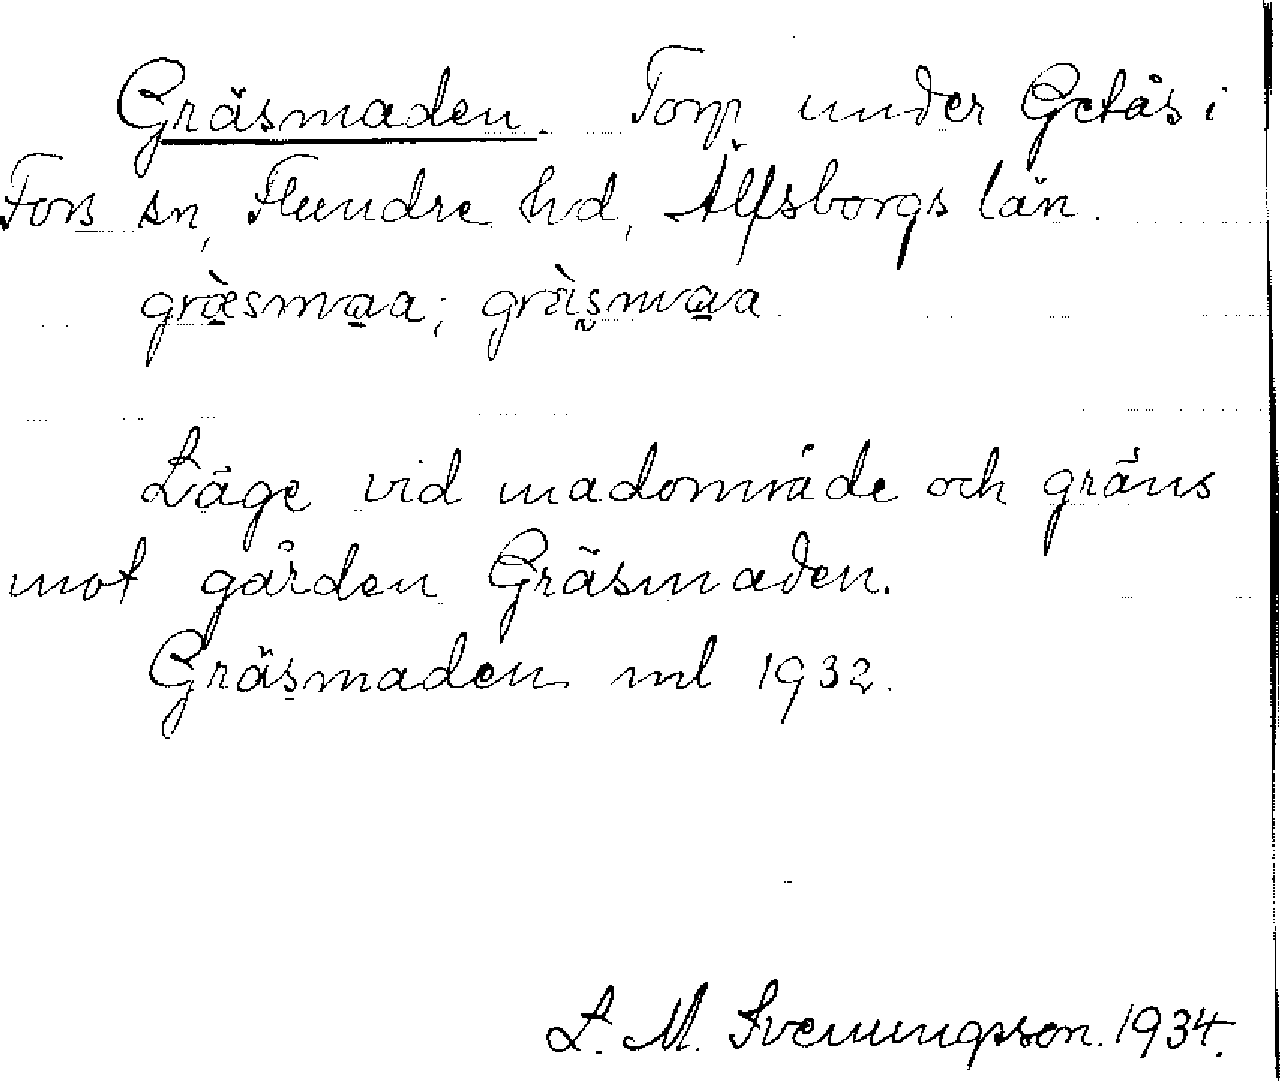 Gräsmaden. Torp under Getås i
Fors sn, Flundre hd, Älfsborgs län.
græ̀smaa; græ̀smaa
Läge vid madområde och gräns
mot gården Gräsmaden.
Gräsmaden ml 1932.
L. M. Svenungsson. 1934.